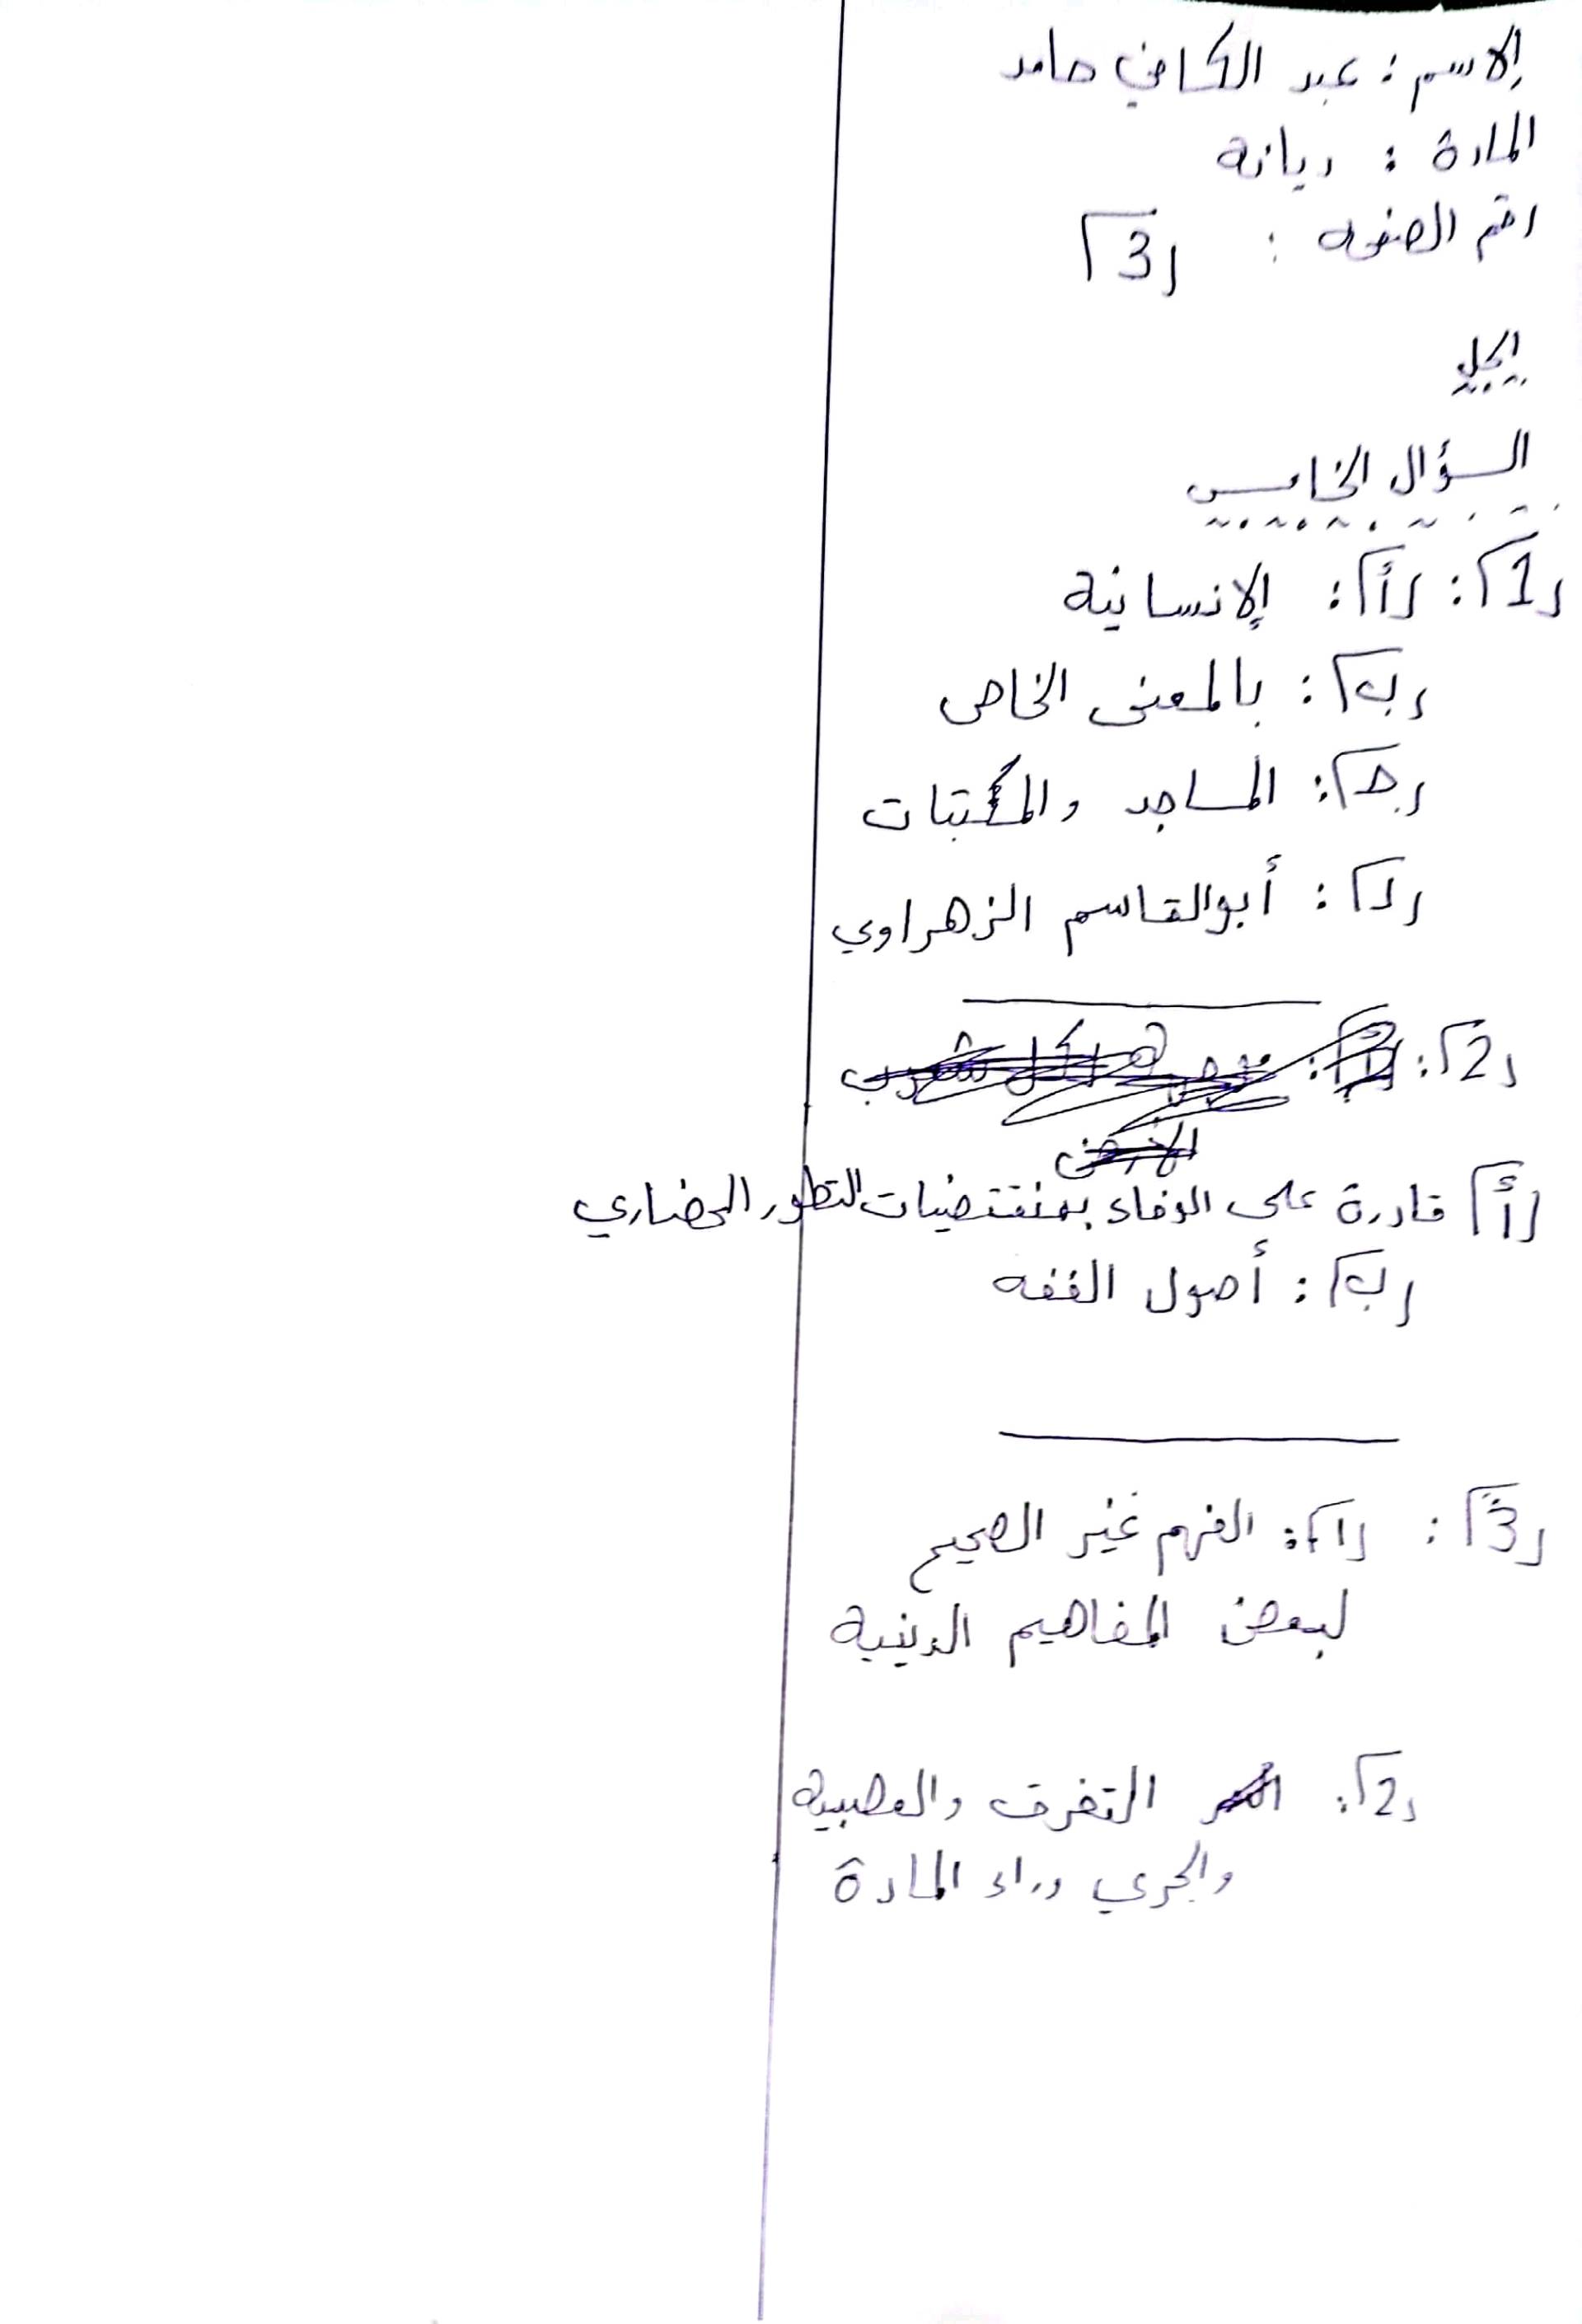 الاسم : عبد الكافي حامد
المادة : ديانة
رقم الصفحة : (3)
الحل
السؤال الخامس
(1) : (أ) : الإنسانية
(ب) : بالمعنى الخاص
(ج) : المساجد والمكتبات
(د) : أبو القاسم الزهراوي
(2) :
(أ) قادرة على الوفاء بمتقتضيات التطور الحضاري
(ب) : أصول الفقه
(3) : (1) : الفهم غير الصحيح
لبعض المفاهيم الدينية
(2) : التفرق والعصبية
والجري وراء المادة